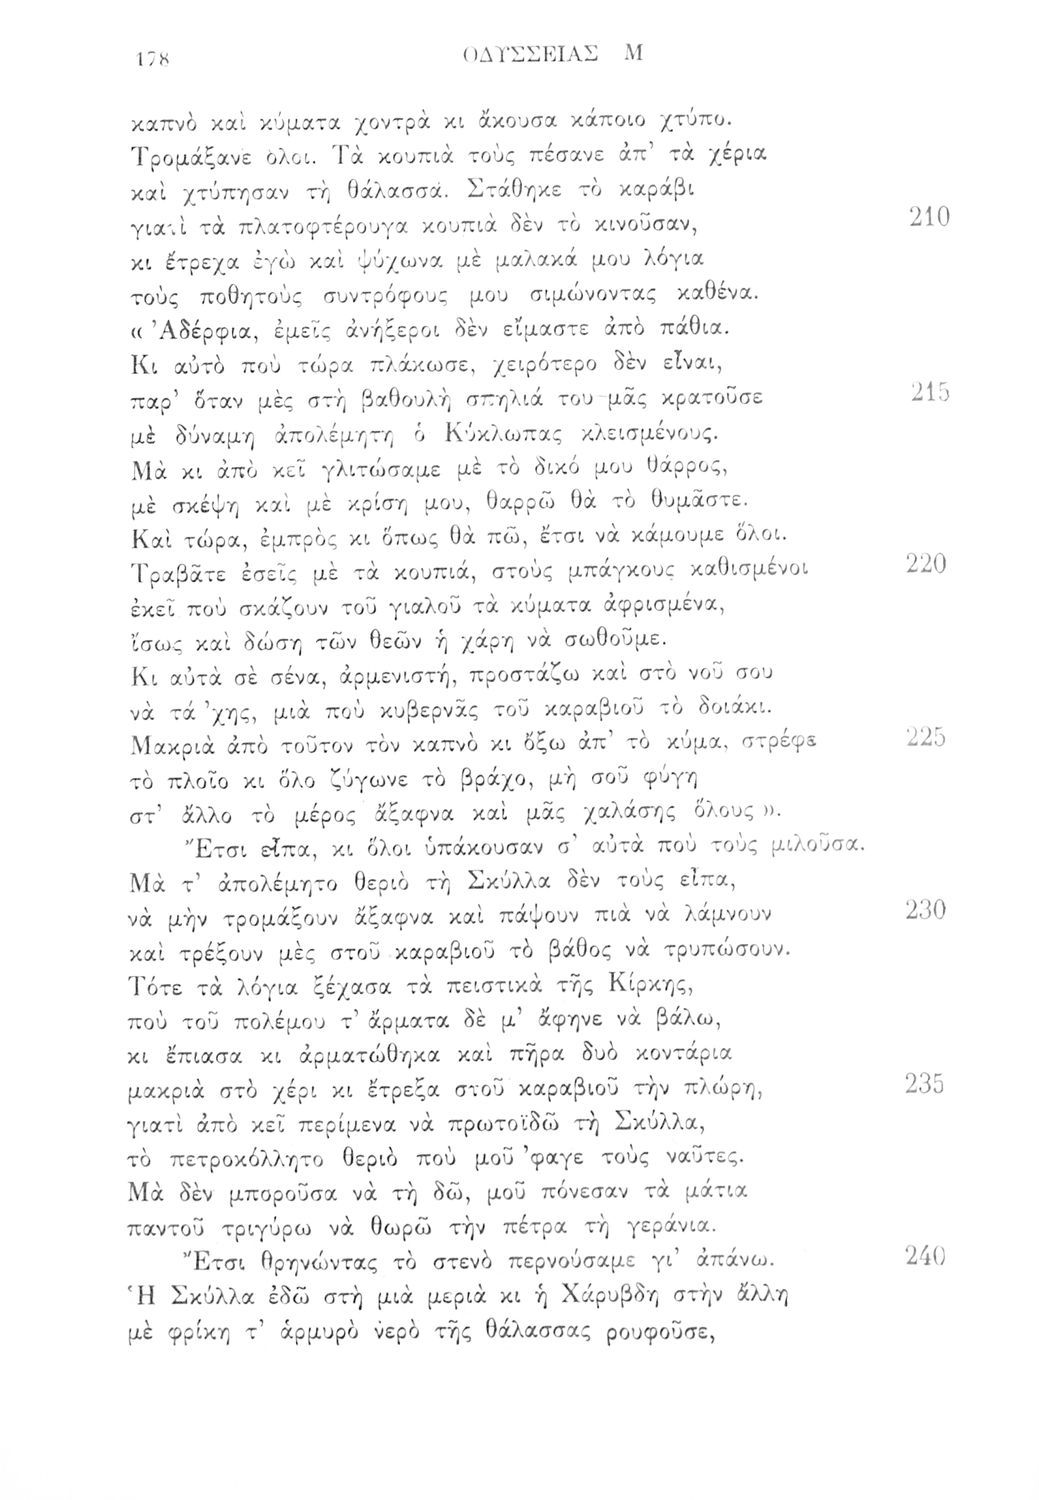 178 ΟΔΥΣΣΕΙΑΣ Μ
καπνὸ καὶ κύματα χοντρὰ κι ἄκουσα κάποιο χτύπο.
Τρομάξανε ὅλοι. Τὰ κουπιὰ τοὺς πέσανε ἀπ’ τὰ χέρια
καὶ χτύπησαν τὴ θάλασσα. Στάθηκε τὸ καράβι
γιατὶ τὰ πλατοφτέρουγα κουπιὰ δὲν τὸ κινοῦσαν, 210
κι ἔτρεχα ἐγὼ καὶ ψύχωνα μὲ μαλακά μου λόγια
τοὺς ποθητοὺς συντρόφους μου σιμώνοντας καθένα.
« Ἀδέρφια, ἐμεῖς ἀνήξεροι δὲν εἴμαστε ἀπὸ πάθια.
Κι αὐτὸ ποὺ τώρα πλάκωσε, χειρότερο δὲν εἶναι,
παρ’ ὅταν μὲς στὴ βαθουλὴ σπηλιά του μᾶς κρατοῦσε 215
μὲ δύναμη ἀπολέμητη ὁ Κύκλωπας κλεισμένους.
Μὰ κι ἀπὸ κεῖ γλιτώσαμε μὲ τὸ δικό μου θάρρος,
μὲ σκέψη καὶ μὲ κρίση μου, θαρρῶ θὰ τὸ θυμᾶστε.
Καὶ τώρα, ἐμπρὸς κι ὅπως θὰ πῶ, ἔτσι νὰ κάμουμε ὅλοι.
Τραβᾶτε ἐσεῖς μὲ τὰ κουπιά, στοὺς μπάγκους καθισμένοι 220
ἐκεῖ ποὺ σκάζουν τοῦ γιαλοῦ τὰ κύματα ἀφρισμένα,
ἴσως καὶ δώση τῶν θεῶν ἡ χάρη νὰ σωθοῦμε.
Κι αὐτὰ σὲ σένα, ἀρμενιστή, προστάζω καὶ στὸ νοῦ σου
νὰ τά ’χης, μιὰ ποὺ κυβερνᾶς τοῦ καραβιοῦ τὸ δοιάκι.
Μακριὰ ἀπὸ τοῦτον τὸν καπνὸ κι ὄξω ἀπ’ τὸ κύμα, στρέφε 225
τὸ πλοῖο κι ὅλο ζύγωνε τὸ βράχο, μὴ σοῦ φύγη
στ’ ἄλλο τὸ μέρος ἄξαφνα καὶ μᾶς χαλάσης ὅλους ».
Ἔτσι εἶπα, κι ὅλοι ὑπάκουσαν σ’ αὐτὰ ποὺ τοὺς μιλοῦσα.
Μὰ τ’ ἀπολέμητο θεριὸ τὴ Σκύλλα δὲν τοὺς εἶπα,
νὰ μὴν τρομάξουν ἄξαφνα καὶ πάψουν πιὰ νὰ λάμνουν 230
καὶ τρέξουν μὲς στοῦ καραβιοῦ τὸ βάθος νὰ τρυπώσουν.
Τότε τὰ λόγια ξέχασα τὰ πειστικὰ τῆς Κίρκης,
ποὺ τοῦ πολέμου τ’ ἄρματα δὲ μ’ ἄφηνε νὰ βάλω,
κι ἔπιασα κι ἀρματώθηκα καὶ πῆρα δυὸ κοντάρια
μακριὰ στὸ χέρι κι ἔτρεξα στοῦ καραβιοῦ τὴν πλώρη, 235
γιατὶ ἀπὸ κεῖ περίμενα νὰ πρωτοϊδῶ τὴ Σκύλλα,
τὸ πετροκόλλητο θεριὸ ποὺ μοῦ ’φαγε τοὺς ναῦτες.
Μὰ δὲν μποροῦσα νὰ τὴ δῶ, μοῦ πόνεσαν τὰ μάτια
παντοῦ τριγύρω νὰ θωρῶ τὴν πέτρα τὴ γεράνια.
Ἔτσι θρηνώντας τὸ στενὸ περνούσαμε γι’ ἀπάνω. 240
Ἡ Σκύλλα ἐδῶ στὴ μιὰ μεριὰ κι ἡ Χάρυβδη στὴν ἄλλη
μὲ φρίκη τ’ ἁρμυρὸ νερὸ τῆς θάλασσας ρουφοῦσε,